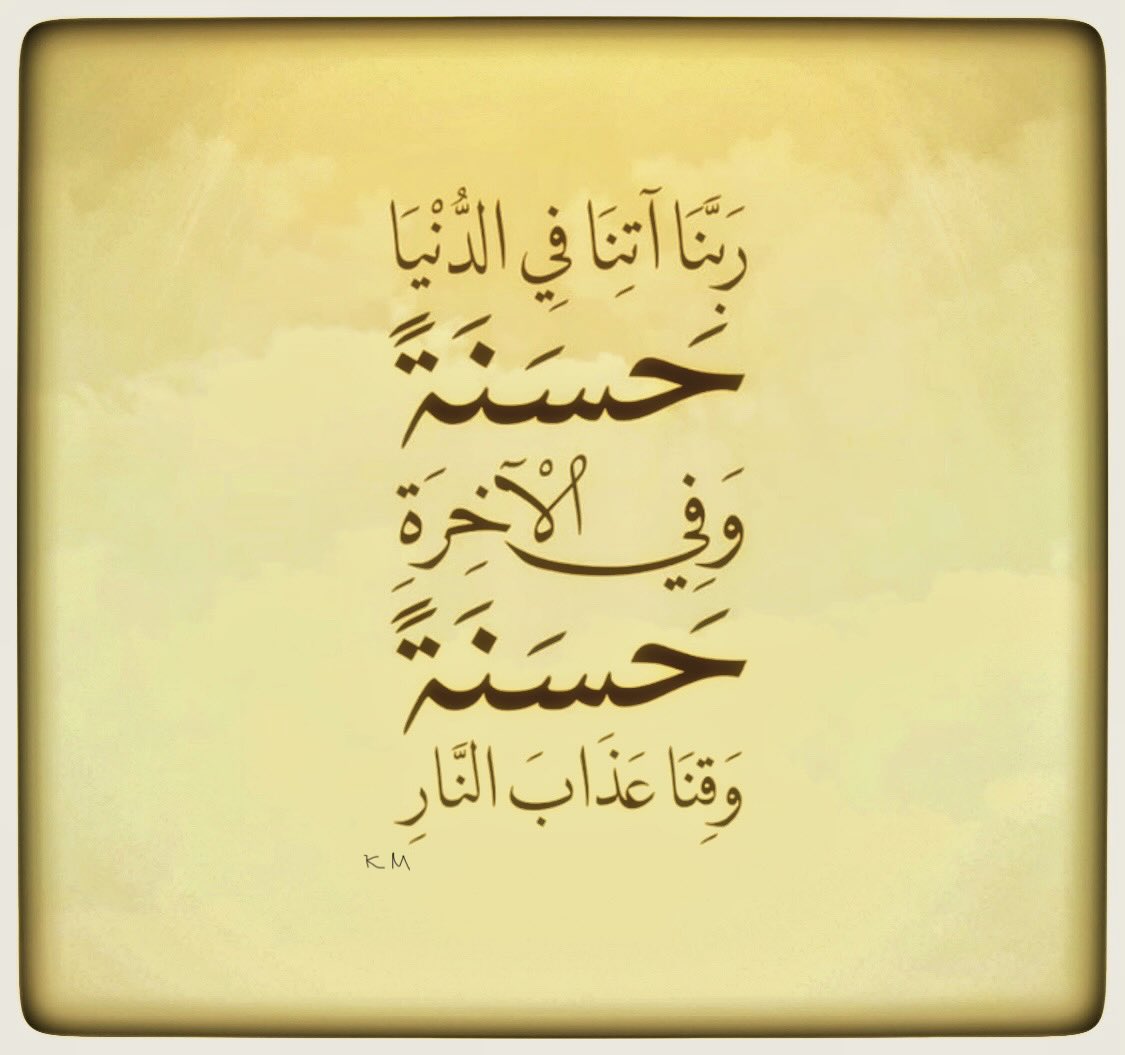 رَبَّنَا آتِنَا فِي الدُّنْيَا
حَسَنَةً
وَفِي الْآخِرَةِ
حَسَنَةً
وَقِنَا عَذَابَ النَّارِ
KM